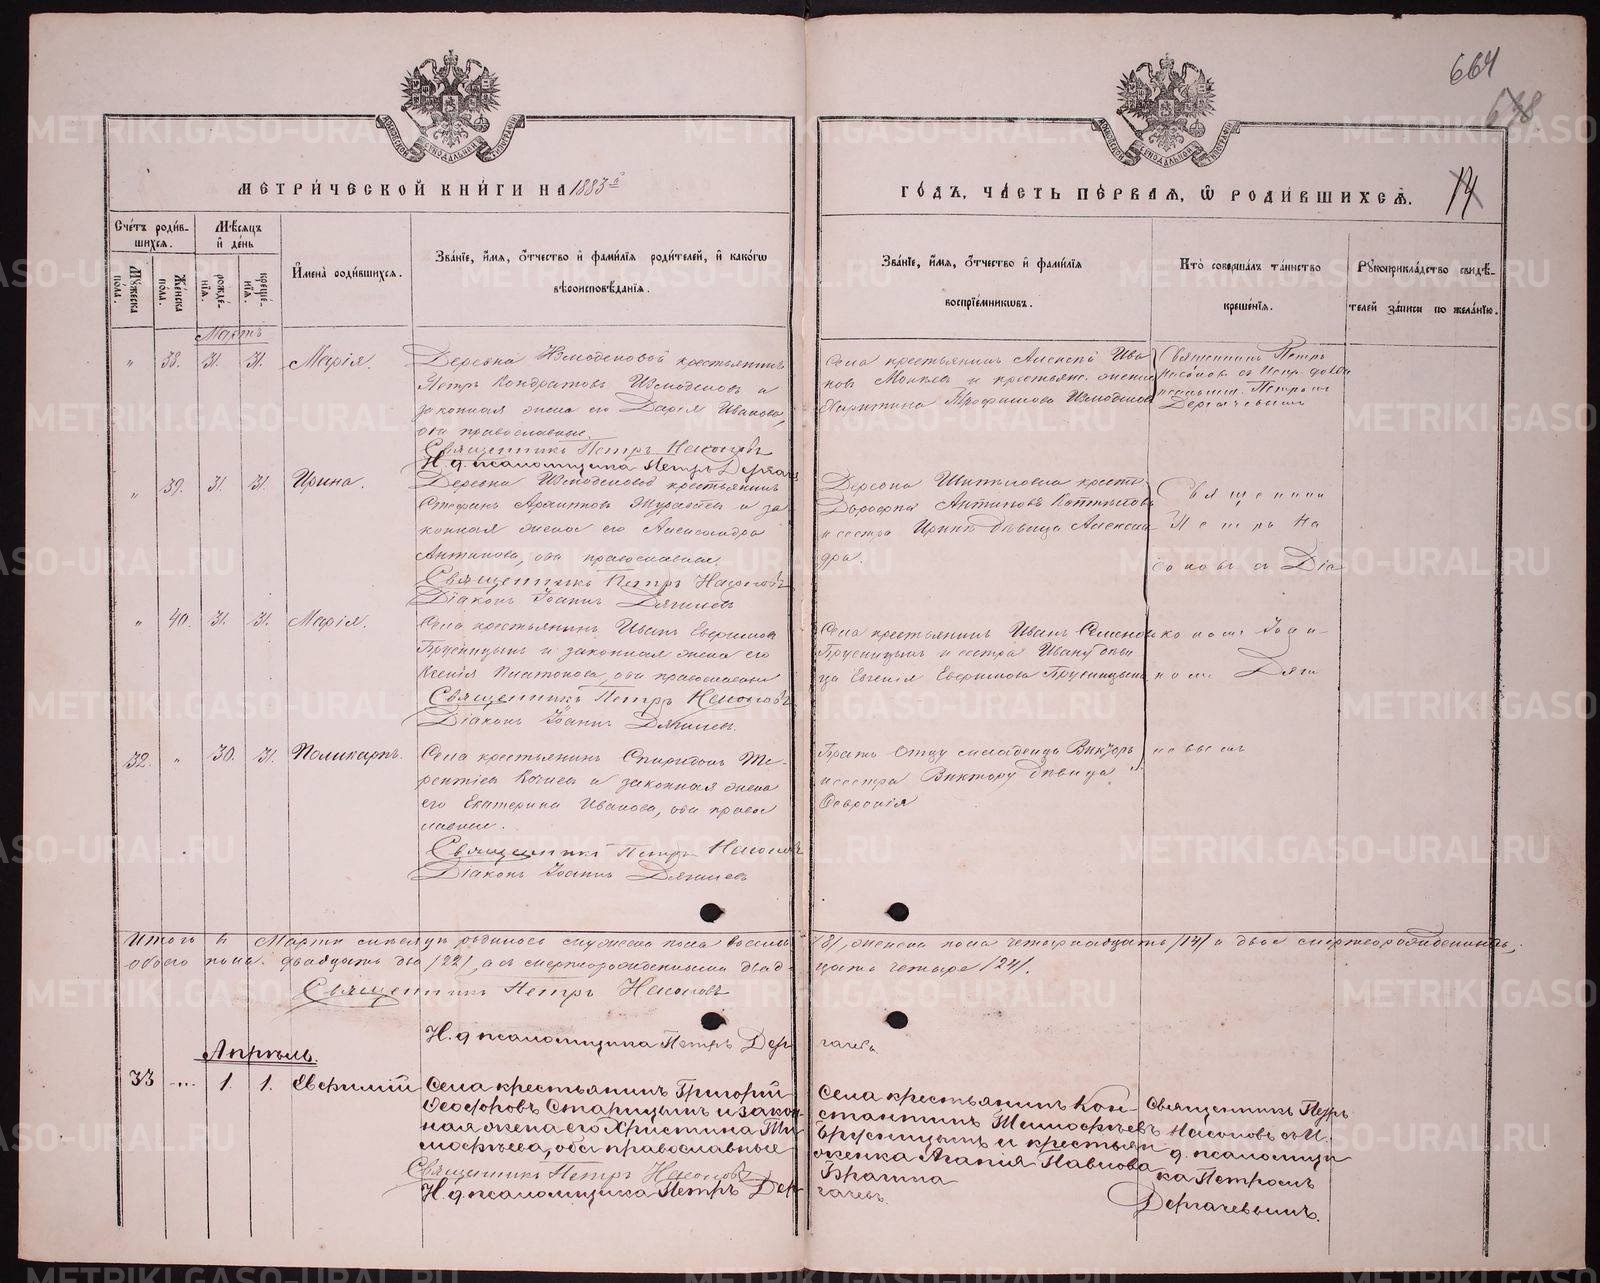 664
638
МОСКОВСКОЙ СѴНОДАЛЬНОЙ ТИПОГРАФІИ
МОСКОВСКОЙ СѴНОДАЛЬНОЙ ТИПОГРАФІИ
МЕТРИ́ЧЕСКОЙ КНИ́ГИ НА 1883 й
ГО́ДЪ, ЧА́СТЬ ПЕ́РВАЯ, Ѡ РОДИ́ВШИХСЯ.
14
Сче́тъ роди́в-
шихся.
Мѣ́сяцъ
и҆ де́нь
Мꙋжеска по́ла.
Же́нска по́ла.
рожде́-
нїѧ.
креще́-
нїѧ.
И҆мена̀ роди́вшихся.
Зва́нїе, и҆́мѧ, ѻ҆́тчество и҆ фами́лїѧ роди́телей, и҆ како́гѡ
вѣроисповѣ́данїѧ.
Зва́нїе, и҆́мѧ, ѻ҆́тчество и҆ фами́лїѧ
воспрїе́мникѡвъ.
Кто̀ соверша́лъ та́инство
креще́нїѧ.
Рꙋкоприкла́дство свидѣ́-
телей за́писи по жела́нїю.
Мартъ
" 38. 31. 31. Марія.
Деревни Измоденовой крестьянинъ
Петръ Кондратовъ Измоденовъ и
законная жена его Дарія Иванова,
оба православные.
Священникъ Петръ Насоновъ
И. д. псаломщика Петръ Дергачевъ
Села крестьянинъ Алексѣй Ива-
новъ и крестьянс. жена
Екатерина Трофимова Измоденова
Священникъ Петръ
Насоновъ съ испр. долж.
псаломщ. Петромъ
Дергачевымъ
" 39. 31. 31. Ирина.
Деревни Измоденовой крестьянинъ
Стефанъ Журавлевъ и за
конная жена его Александра
Антипова, оба православные.
Священникъ Петръ Насоновъ
Діаконъ Іоаннъ Дягилевъ
Деревни крестьян.
Дорофей Антиповъ
и сестра Ирины дѣвица Алексан
дра.
Священник
Петръ На
соновъ съ Діа
" 40. 31. 31. Марія.
Села крестьянинъ Иванъ Евфимовъ
Брусницынъ и законная жена его
Ксенія Платонова, оба православные
Священникъ Петръ Насоновъ
Діаконъ Іоаннъ Дягилевъ.
Села крестьянинъ Иванъ Семеновъ
Брусницынъ и сестра Ивану дѣви
ца Евгенія Евфимова Брусницына
кономъ Іоан-
номъ Дяги
32. " 30. 31. Поликарпъ.
Села крестьянинъ Спиридонъ Те-
рентіевъ и законная жена
его Екатерина Иванова, оба право
славные.
Священникъ Петръ Насоновъ
Діаконъ Іоаннъ Дягилевъ
Братъ отцу младенца Викторъ
и сестра Виктору дѣвица
Февронія
левымъ
Итого въ Мартѣ мѣсяцѣ родилось мужеска пола восемь /8/, женска пола четырнадцать /14/ и двое мертворожденныхъ,
обоего пола двадцать два /22/, а съ мертворожденными двад- цать четыре /24/.
Священникъ Петръ Насоновъ
И. д. псаломщика Петръ Дер гачевъ.
Апрѣль.
33 -..- 1. 1. Евфимій
Села крестьянинъ Григорій
Феодоровъ Старицынъ и закон
ная жена его Христина Ти
мофѣева, оба православные
Священникъ Петръ Насоновъ
И. д. псаломщика Петръ Дер гачевъ.
Села крестьянинъ Кон-
стантинъ Тимофѣевъ
Брусницынъ и крестьян
женка Агапія Павлова
Брагина
Священникъ Петръ
Насоновъ съ И.
д. псаломщи
ка Петромъ
Дергачевымъ.
METRIKI.GASO-URAL.RU